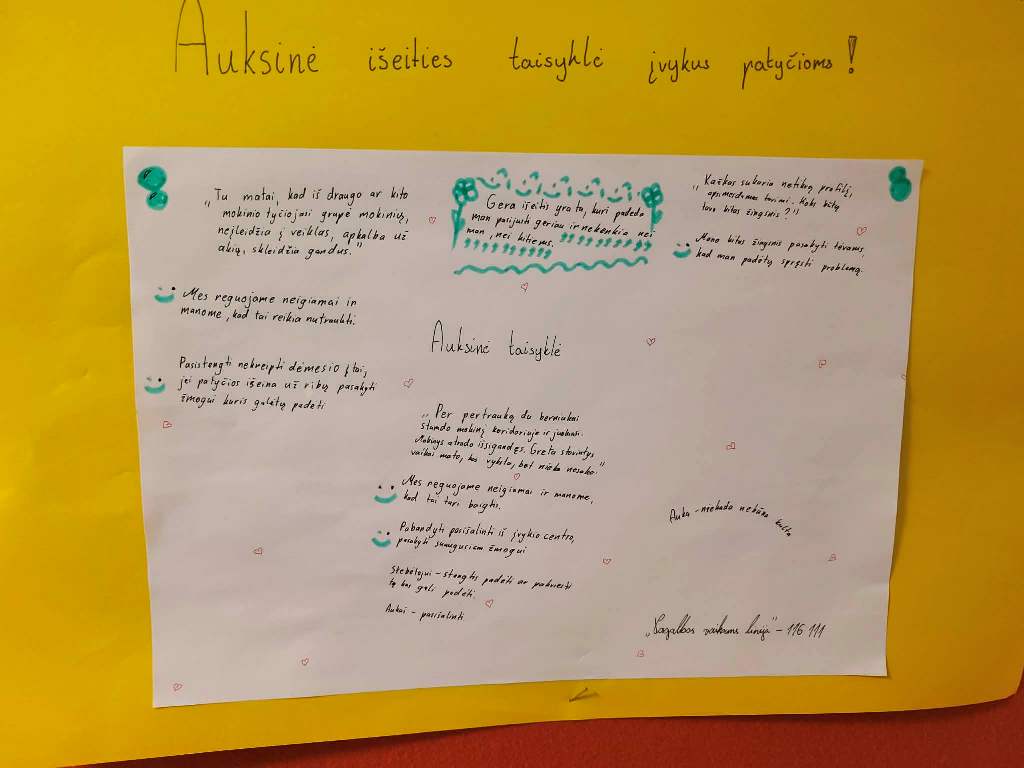 Auksinė išeities taisyklė įvykus patyčioms!
„Tu matai, kad iš draugo ar kito
mokinio tyčiojasi grupė mokinių,
neįleidžia į veiklas, apkalba už
akių, skleidžia gandus."
Mes reguojame neigiamai ir
manome, kad tai reikia nutraukti.
Pasistengti nekreipti dėmesio į tai,
jei patyčios išeina už ribų pasakyti
žmogui kuris galėtų padėti
Gera išeitis yra ta, kuri padeda
man pasijusti geriau ir nekenkia nei
man, nei kitiems.
Auksinė taisyklė
„Per pertrauką du berniukai
stumdo mokinį koridoriuje ir juokiasi.
Mokinys atrodo išsigandęs. Greta stovintys
vaikai mato, kas vyksta, bet nieko nesako."
Mes reguojame neigiamai ir manome,
kad tai turi baigtis.
Pabandyti pasišalinti iš įvykio centro,
pasakyti suaugusiam žmogui
Stebėtojui - stengtis padėti ar pakviesti
tą kas gali padėti.
Aukai - pasišalinti
„Kažkas sukuria netikrą profilį,
apsimesdamas tavimi. Koks būtų
tavo kitas žingsnis?"
Mano kitas žingsnis pasakyti tėvams,
kad man padėtų spręsti problemą.
Auka - niekada nebūna kalta
„Pagalbos vaikams linija" - 116 111